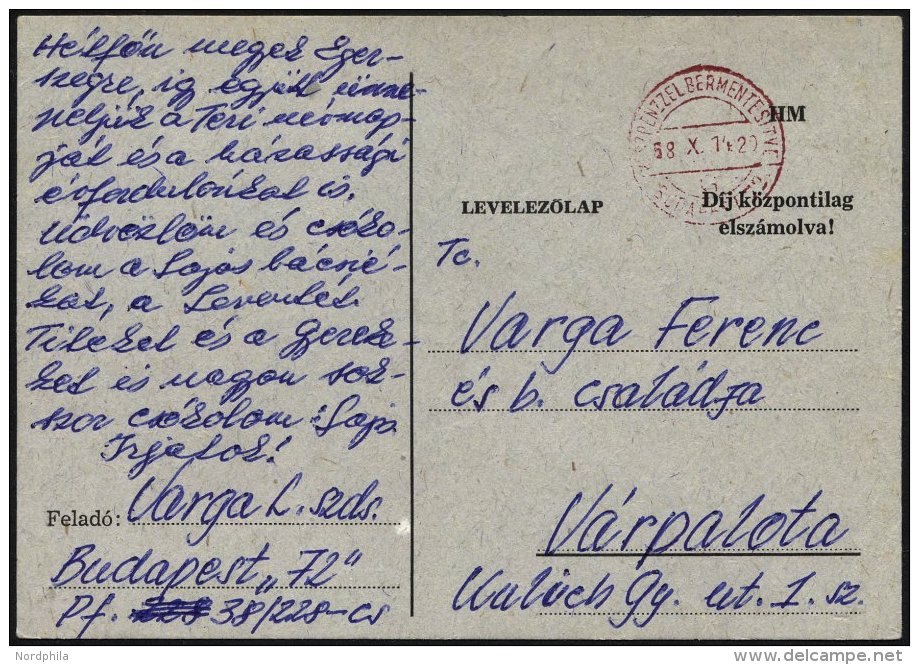 Hétfőn megyek Eger-
szegre, így együtt ünne-
peljük a Teri névnap-
ját és a házassági
évfordulónkat is.
Üdvözlöm és csóko-
lom a Lajos bácsié-
kat, a Leventét
Titeket és a gyereke-
ket is nagyon sok-
szor csókolom: Lajo
Írjatok!
Feladó: Varga L. szds.
Budapest „72"
Pf. 38/228-cs
KÉSZPÉNZZEL BÉRMENTESÍTVE
68 X. 14 20
BUDAPEST
HM
LEVELEZŐLAP
Díj központilag
elszámolva!
Tc.
Varga Ferenc
és b. családja
Várpalota
Gy. ut. 1. sz.
Nordphila
delcampe.net